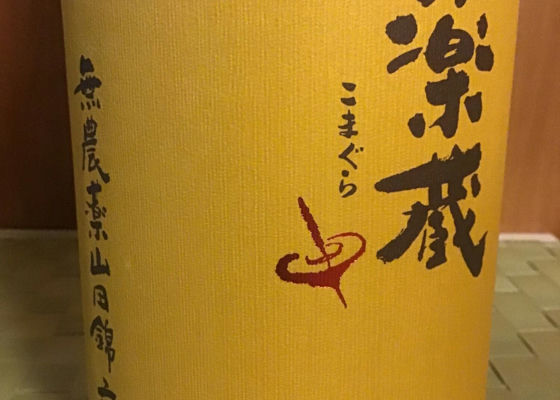 楽蔵
こまぐら
無農薬山田錦